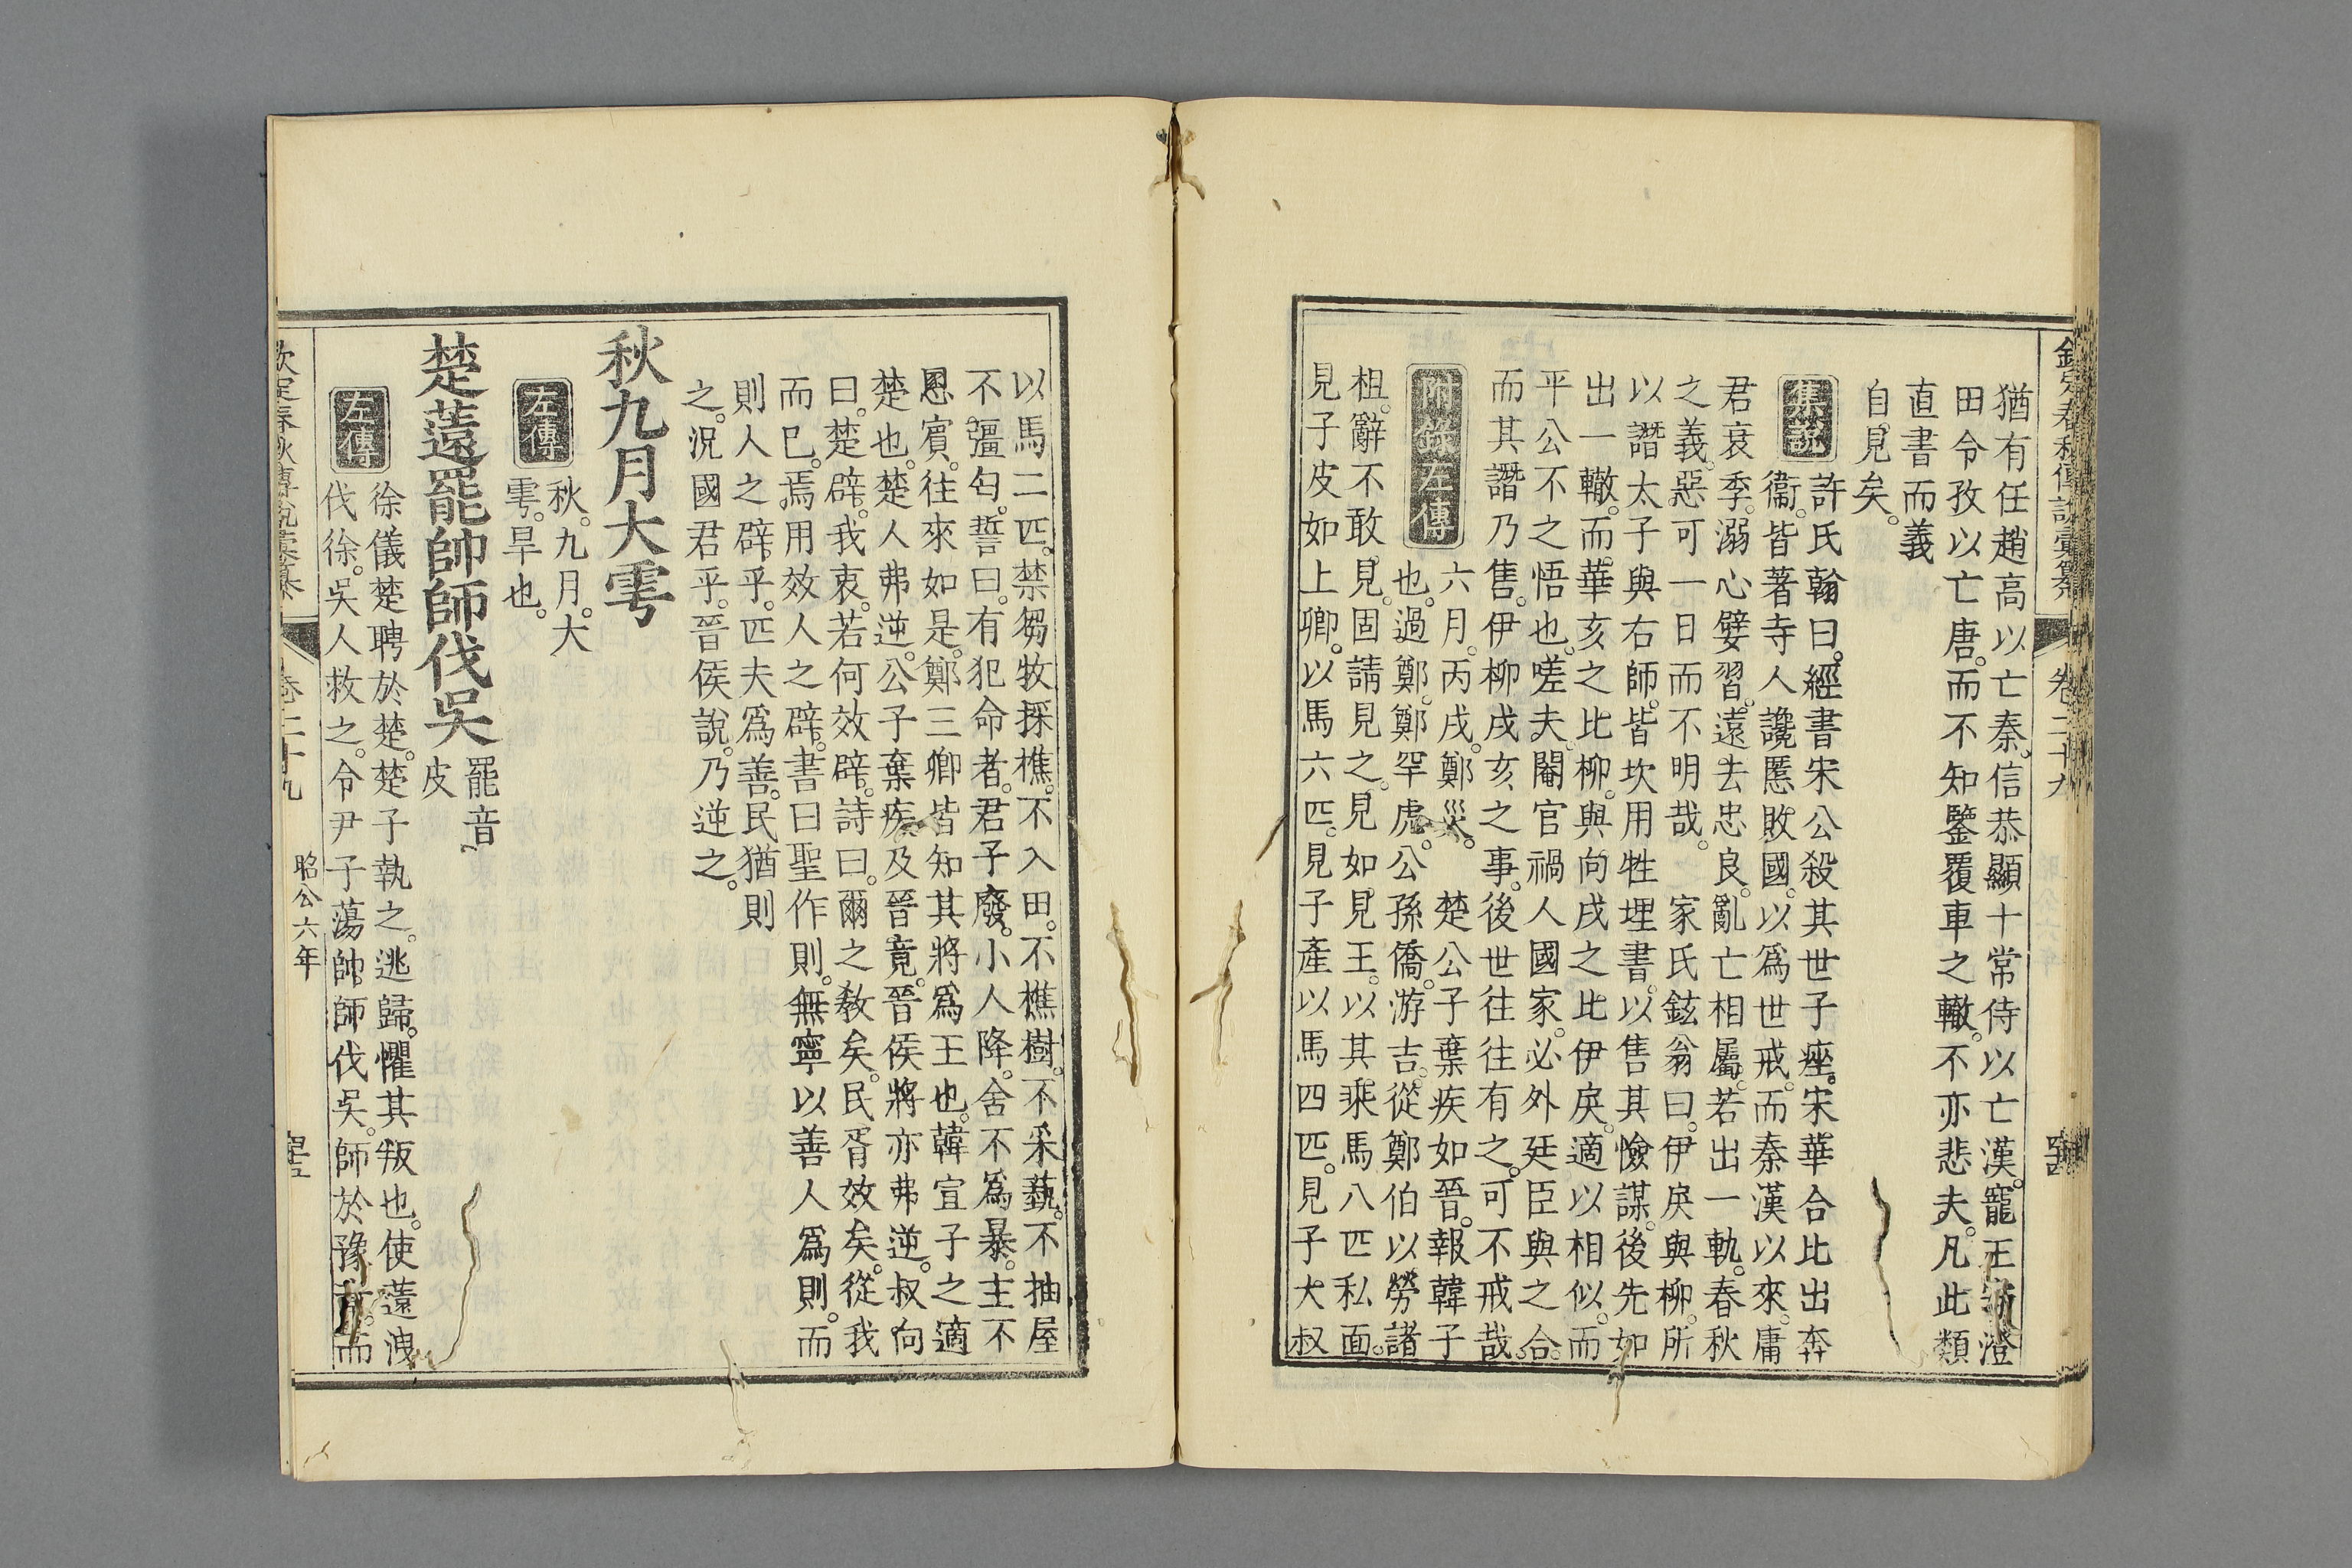 欽定春秋傳說彙纂 卷二十九
猶有任趙高以亡秦。信恭顯十常侍以亡漢。寵王 澄
田令孜以亡唐。而不知鑒覆車之轍。不亦悲夫。凡此類
直書而義
自見矣。
集說 許氏翰曰。經書宋公殺其世子痤。宋華合比出奔
衞。皆著寺人讒慝敗國。以爲世戒。而秦漢以來。庸
君衰季。溺心嬖習。遠去忠良。亂亡相屬。若出一軌。春秋
之義。惡可一日而不明哉。 家氏鉉翁曰。伊戾與柳。所
以譖太子與右師。皆坎用牲埋書。以售其憸謀。後先如
出一轍。而華亥之比柳。與向戌之比伊戾。適以相似。而
平公不之悟也。嗟夫。閹官禍人國家。必外廷臣與之合。
而其譖乃售。伊柳戌亥之事。後世往往有之。可不戒哉。
附錄左傳 六月。丙戌。鄭災。 楚公子棄疾如晉。報韓子
也。過鄭。鄭罕虎。公孫僑。游吉。從鄭伯以勞諸
柤。辭不敢見。固請見之。見如見王。以其乘馬八匹私面。
見子皮如上卿。以馬六匹。見子產以馬四匹。見子大叔
以馬二匹。禁芻牧採樵。不入田。不樵樹。不采蓺。不抽屋
不彊匄。誓曰。有犯命者。君子廢。小人降。舍不爲暴。主不
慁賓。往來如是。鄭三卿皆知其將爲王也。韓宣子之適
楚也。楚人弗逆。公子棄疾及晉竟。晉侯將亦弗逆。叔向
曰。楚辟。我衷。若何效辟。詩曰。爾之敎矣。民胥效矣。從我
而已。焉用效人之辟。書曰聖作則。無寧以善人爲則。而
則人之辟乎。匹夫爲善。民猶則
之。況國君乎。晉侯說。乃逆之。
秋九月大雩
左傳 秋。九月。大
雩。旱也。
楚薳罷帥師伐吳 罷音
皮
左傳 徐儀楚聘於楚。楚子執之。逃歸。懼其叛也。使薳洩
伐徐。吳人救之。令尹子蕩帥師伐吳。師於豫章。而
欽定春秋傳說彙纂 卷二十九 昭公六年